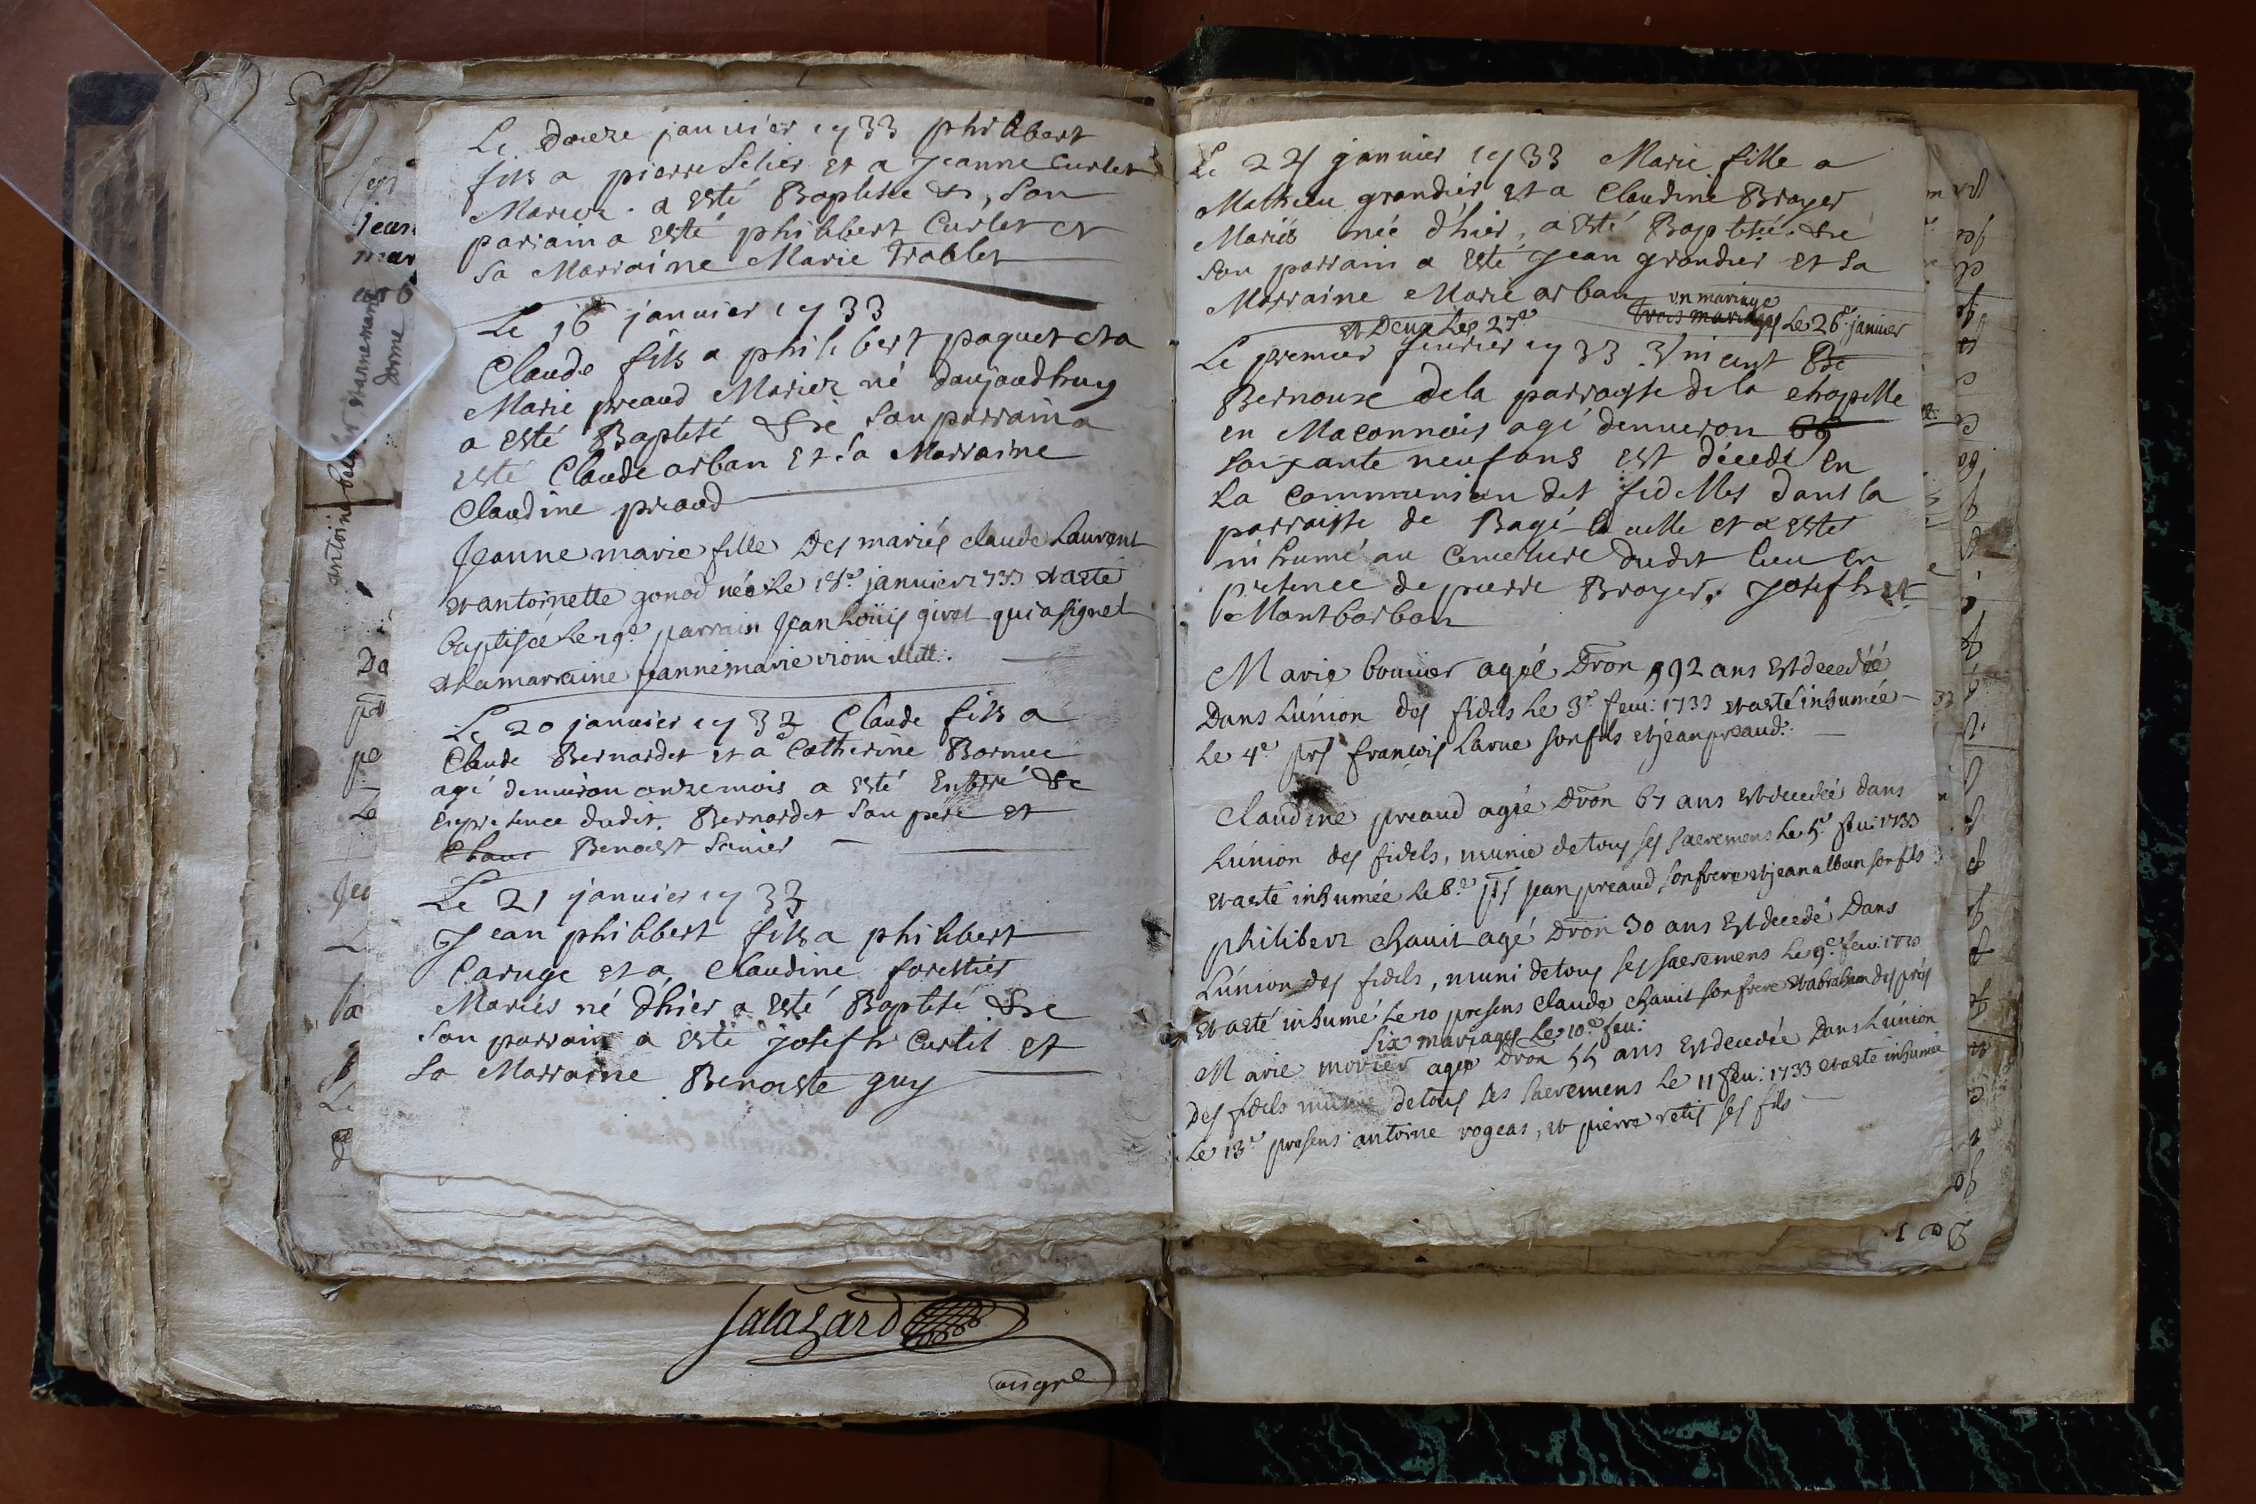 Le douze januier 1733 philibert
fils a pierre Selier et a Jeanne Curlet
Mariez. a esté Baptisée &, son
parrain a esté philibert Curlet et
sa Marraine Marie Trablet
Le 16 januier 1733
Claude fils a philibert paquet et a
Marie preaud Mariez né daujaudhuy
a esté Baptisé &re son parrain a
esté Claude arban et sa Marraine
Claudine preaud
Jeanne marie fille Des mariés claude Laurent
et antoinette gonod née le 18e. januier 1733 et a esté
baptisée le 19e. parrain Jean Loüis givet qui a signet
et la marraine jeanne marie viom illitt.
Le 20 januier 1733 Claude fils a
Claude Bernardet et a Catherine Bornuc
agé denuiron onze mois a esté Enterré &c
en presence dudit. Bernardet son pere et
Benoist Sanier
Le 21 januier 1733
Jean philibert fils a philibert
Caruge et a Claudine forestier
Mariés né d'hier a esté Baptisé &re
son parrain a esté joseph Curtil et
sa Marraine Benoiste guy
Le 24 januier 1733 Marie fille a
Mathieu grandier et a Claudine Broyer
Mariés née d'hier, a esté Baptisée. &re
son parrain a esté Jean grandier et sa
Marraine Marie arban
un mariage
trois mariages le 26e. januier
et Deux Les 27e
Le premier feurier 1733 Vincent Be
Bernoux de la parroisse de la chapelle
en Maconnois agé denuiron 69
soixante neuf ans est décédé en
la Communion des fidelles dans la
parroisse de Bagé la uille et a estet
inhumé au Cemetiere dudit lieu en
presence de pierre Broyer. Joseph et
Montbarbon
Marie bouuier agée Dron 92 ans est decedéé
Dans L'union des fidels le 3e. feur: 1733 et a esté inhumée
le 4e prs françois Larue son fils et jean preaud.
Claudine preaud agée Dron 67 ans est decedée dans
L'union des fidels, munie de tous ses sacremens le 5e. feu: 1733
et a esté inhumée le 6.e prs jean preaud son frere et jean alban son fils
philibert chauit agé Dron 30 ans est decedé Dans
L'union des fidels, muni de tous ses sacremens le 9e. feu: 1733
et a esté inhumé le 10 presens claude chauit son frere et abraham des prés
six mariages le 10.e feu:
Marie movier agée Dron 55 ans est decedée Dans L'union
Des fidels munie de tous ses sacremens le 11 feu: 1733 et a esté inhumée
le 13e presens antoine rogeas, et pierre retis ses fils
salazard